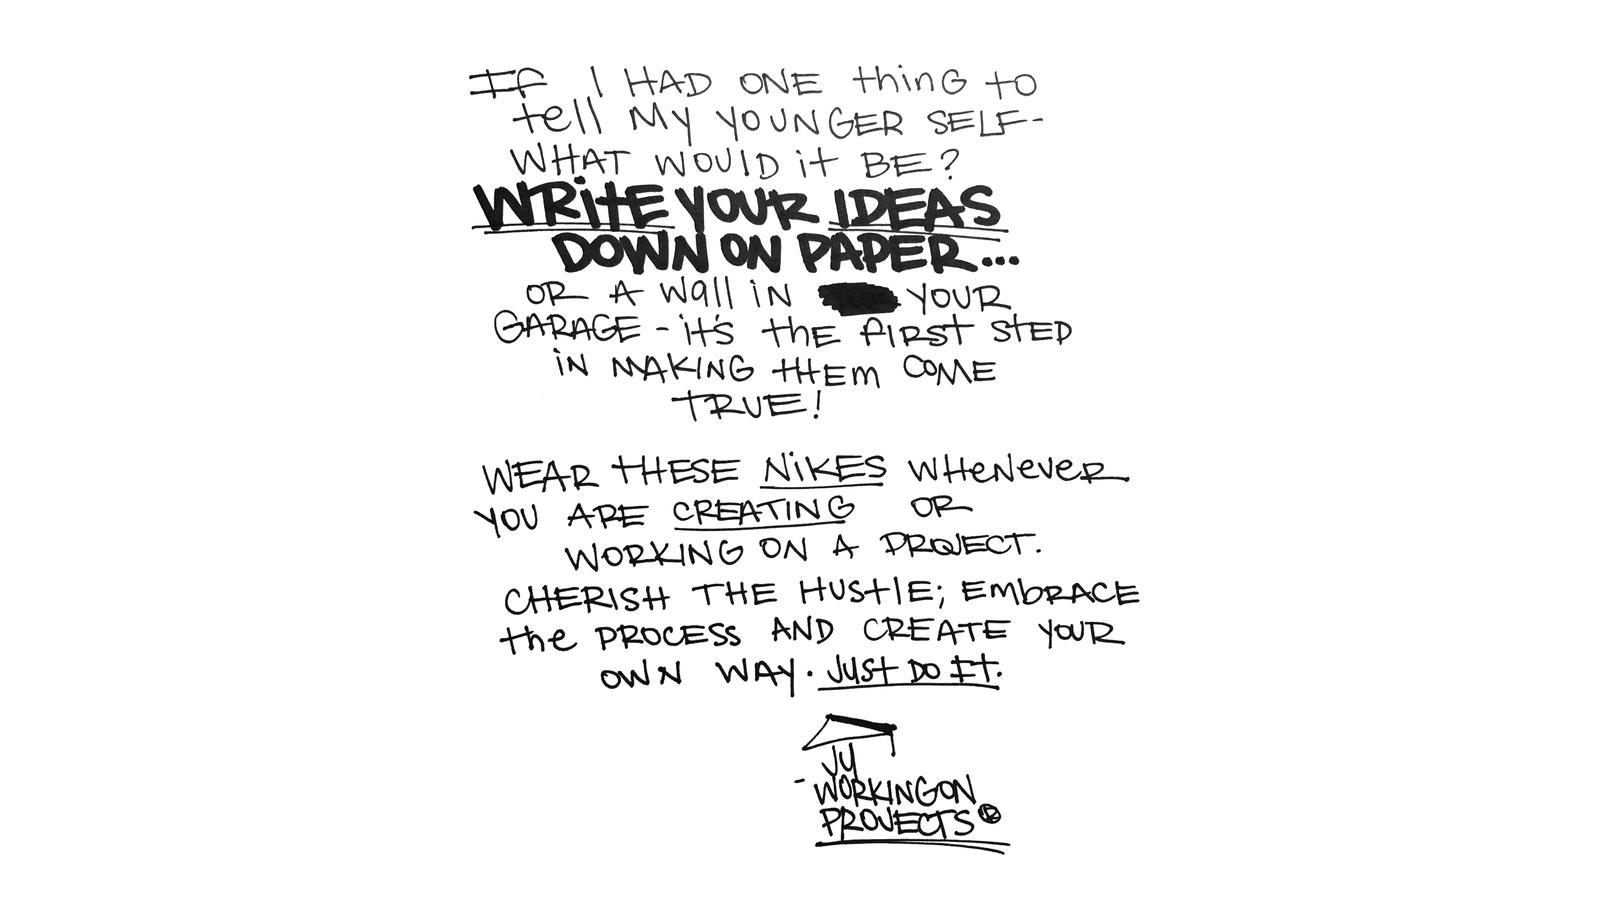 If I HAD ONE thing to
tell My YOUNGER SELF-
WHAT WOULD it BE?
WRitE YOUR IDEAS
DOWN ON PAPER...
OR A Wall iN YOUR
GARAGE - it's thE first StEP
iN MAKING tHEm COME
TRUE!
WEAR tHESE NiKES WHeNever
YOU ARE CREATING OR
WORKING ON A PROJECT.
CHERISH THE HUStlE; EmbRACE
the PROCESS AND CREATE YOUR
OWN WAY. JUSt DO It.
JU
- WORKINGON
PROJECTS ®